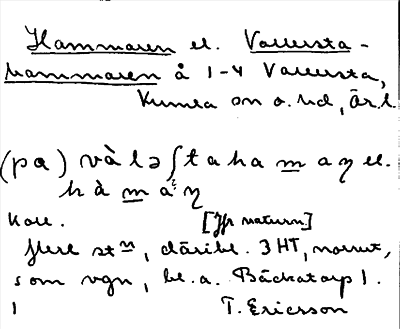 Hammaren el. Vallersta-
hammaren å 1-4 Vallersta,
Kumla sn o. hd, Ör. l.
(pa) vàləʃtahamaŋ el.
hàmaŋ
Koll. [Jfr naturn]
flere st n, däribl. 3 HT, norrut,
som vgn, bl.a. Bäckatorp 1.
1 T. Ericsson